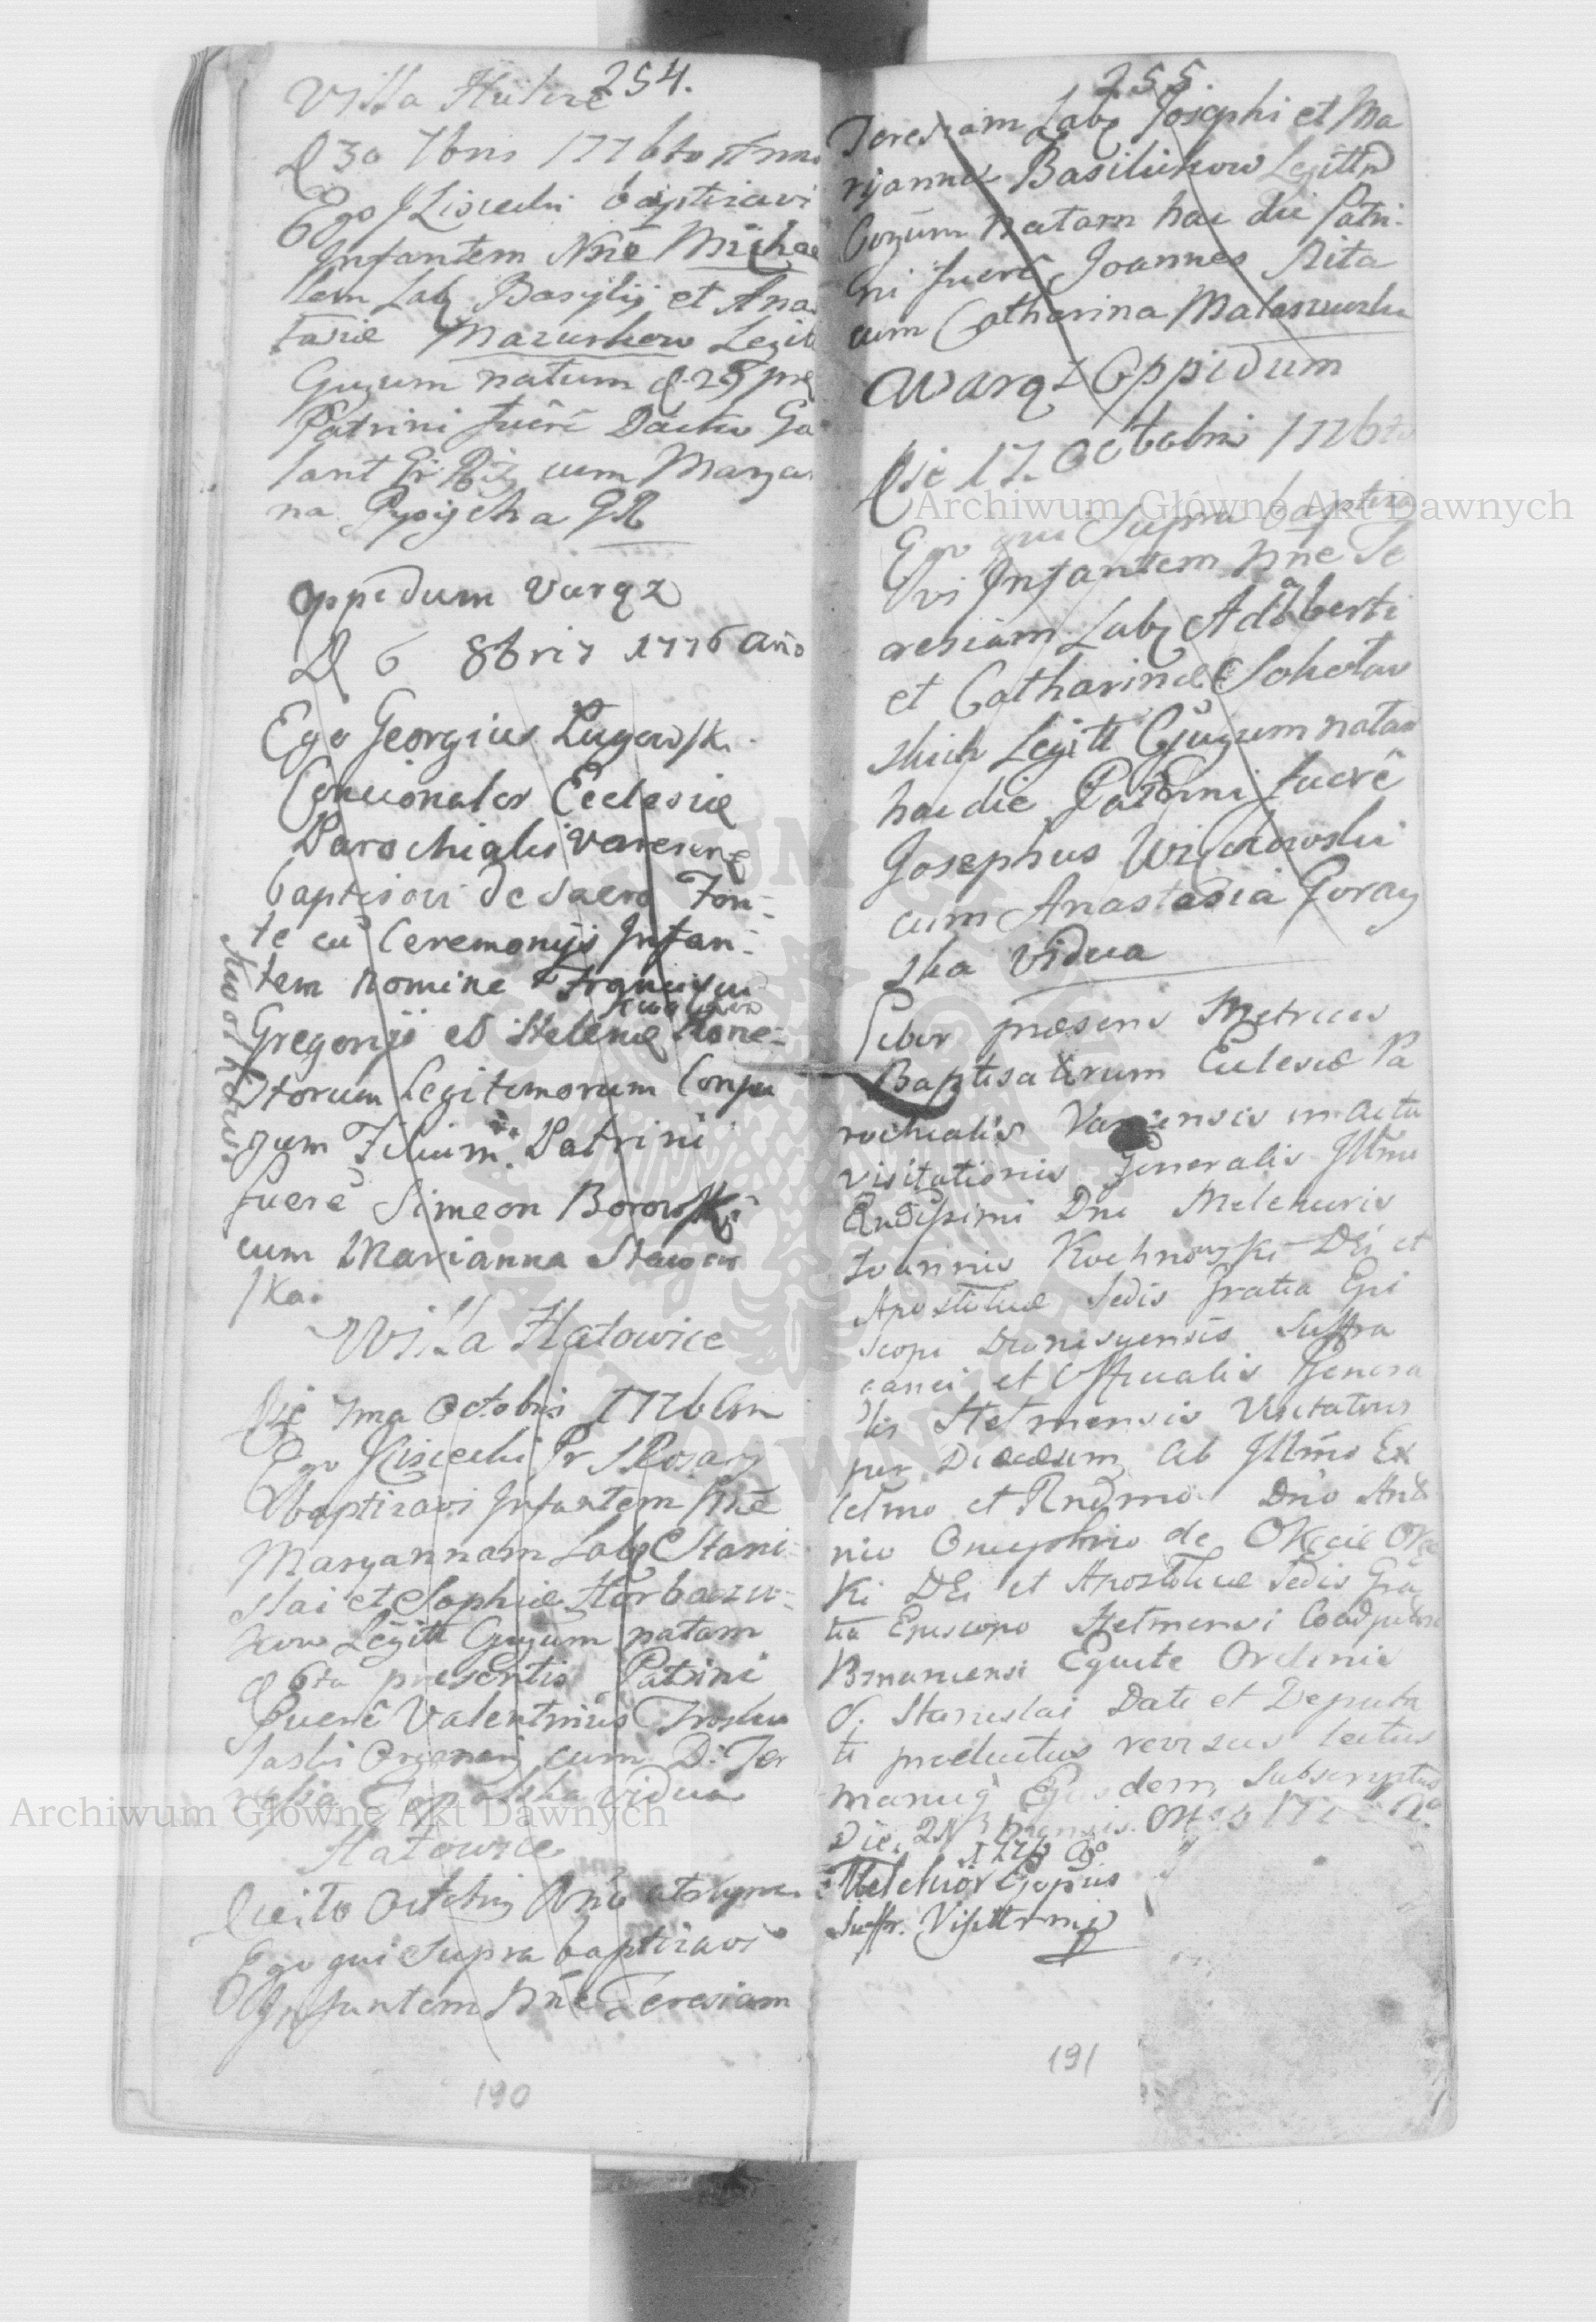 254.
Villa Hulcze
D 30 7bris 1776to Anno
Ego J Lisiecki baptizavi
Infantem Nne Michae
lem Lab Basylij et Anas
tasiæ Mazurkow Legit
Gugum natum d 29 prę
Patrini fuere Dacko Ga
lant Gr Rit cum Marya
na Pysycha GR
Oppidum Varąz
D 6 8bris 1776 Año
Ego Georgius Ługowski
Concionator Ecclesiæ
Parochialis Varesens
baptisavi de Sacro Fon-
te cū Ceremonijs Infan-
tem Nomine Franciscum
Gregorij et Helenæ Hone-
storum Legitimorum Conju
gum Filium. Patrini
fuere Simeon Borowski
cum Marianna Stawow
ska.
Villa Hatowice
Die 7ma Octobris 1776 Ann
Ego Lisiecki Pr S Rosary
baptizavi Infantem Nne
Maryannam Lab Stani-
slai et Sophiæ Horbaczu-
kow Legitt Gugum natam
d 6ta presentis Patrini
fuere Valentinus
laski Organarij cum D: Ter
vidua
Hatowice
Octobris Anno ut supra
Ego qui Supra baptizavi
Infantem Nne Teresiam
190
255.
Teresiam Lab Josephi et Ma
ryannæ Basilukow Legittą
Conjum natam hac die Patri-
ni fuere Joannes Rita
cum Catharina Mataszewska
Warąz Oppidum
Die 17 Octobris 1776to
Ego qui Supra baptiza
vi Infantem Nne Te
resiam Lab Adalberti
et Catharinæ Sokołow
skich Legitt Gugum natam
hac die Patrini fuere
Josephus Wiszkowski
cum Anastasia Goray
ska Vidua
Liber præsens Metrices
Baptisatorum Eclesiæ Pa
rochialis Varensis in actu
visitationis Generalis Illmi
Rndissimi Dni Melchioris
Joannis Kochnowski Dei et
Apostolicæ Sedis Gratia Epi
scopi Dionisyensis Suffra
ganei et Officialis Genera
lis Helmensis Visitatoris
per Diecesim ab Illmo Ex
celmo et Rndmo Dno Anto
nio Onuphrio de Okęcie Okę
ki DEi et Apostolicæ Sedis Gra
tia Episcopo Helmensi Coadjutore
Posnaniensi Equite Ordinis
S. Stanislai Dati et Deputa
ti productus revisus lectus
manuq Ejusdem Subscriptus
Die
1776 Ao
Melchior Eppus
Suffr. Visittrmp
191
Archiwum Główne Akt Dawnych
Archiwum Główne Akt Dawnych